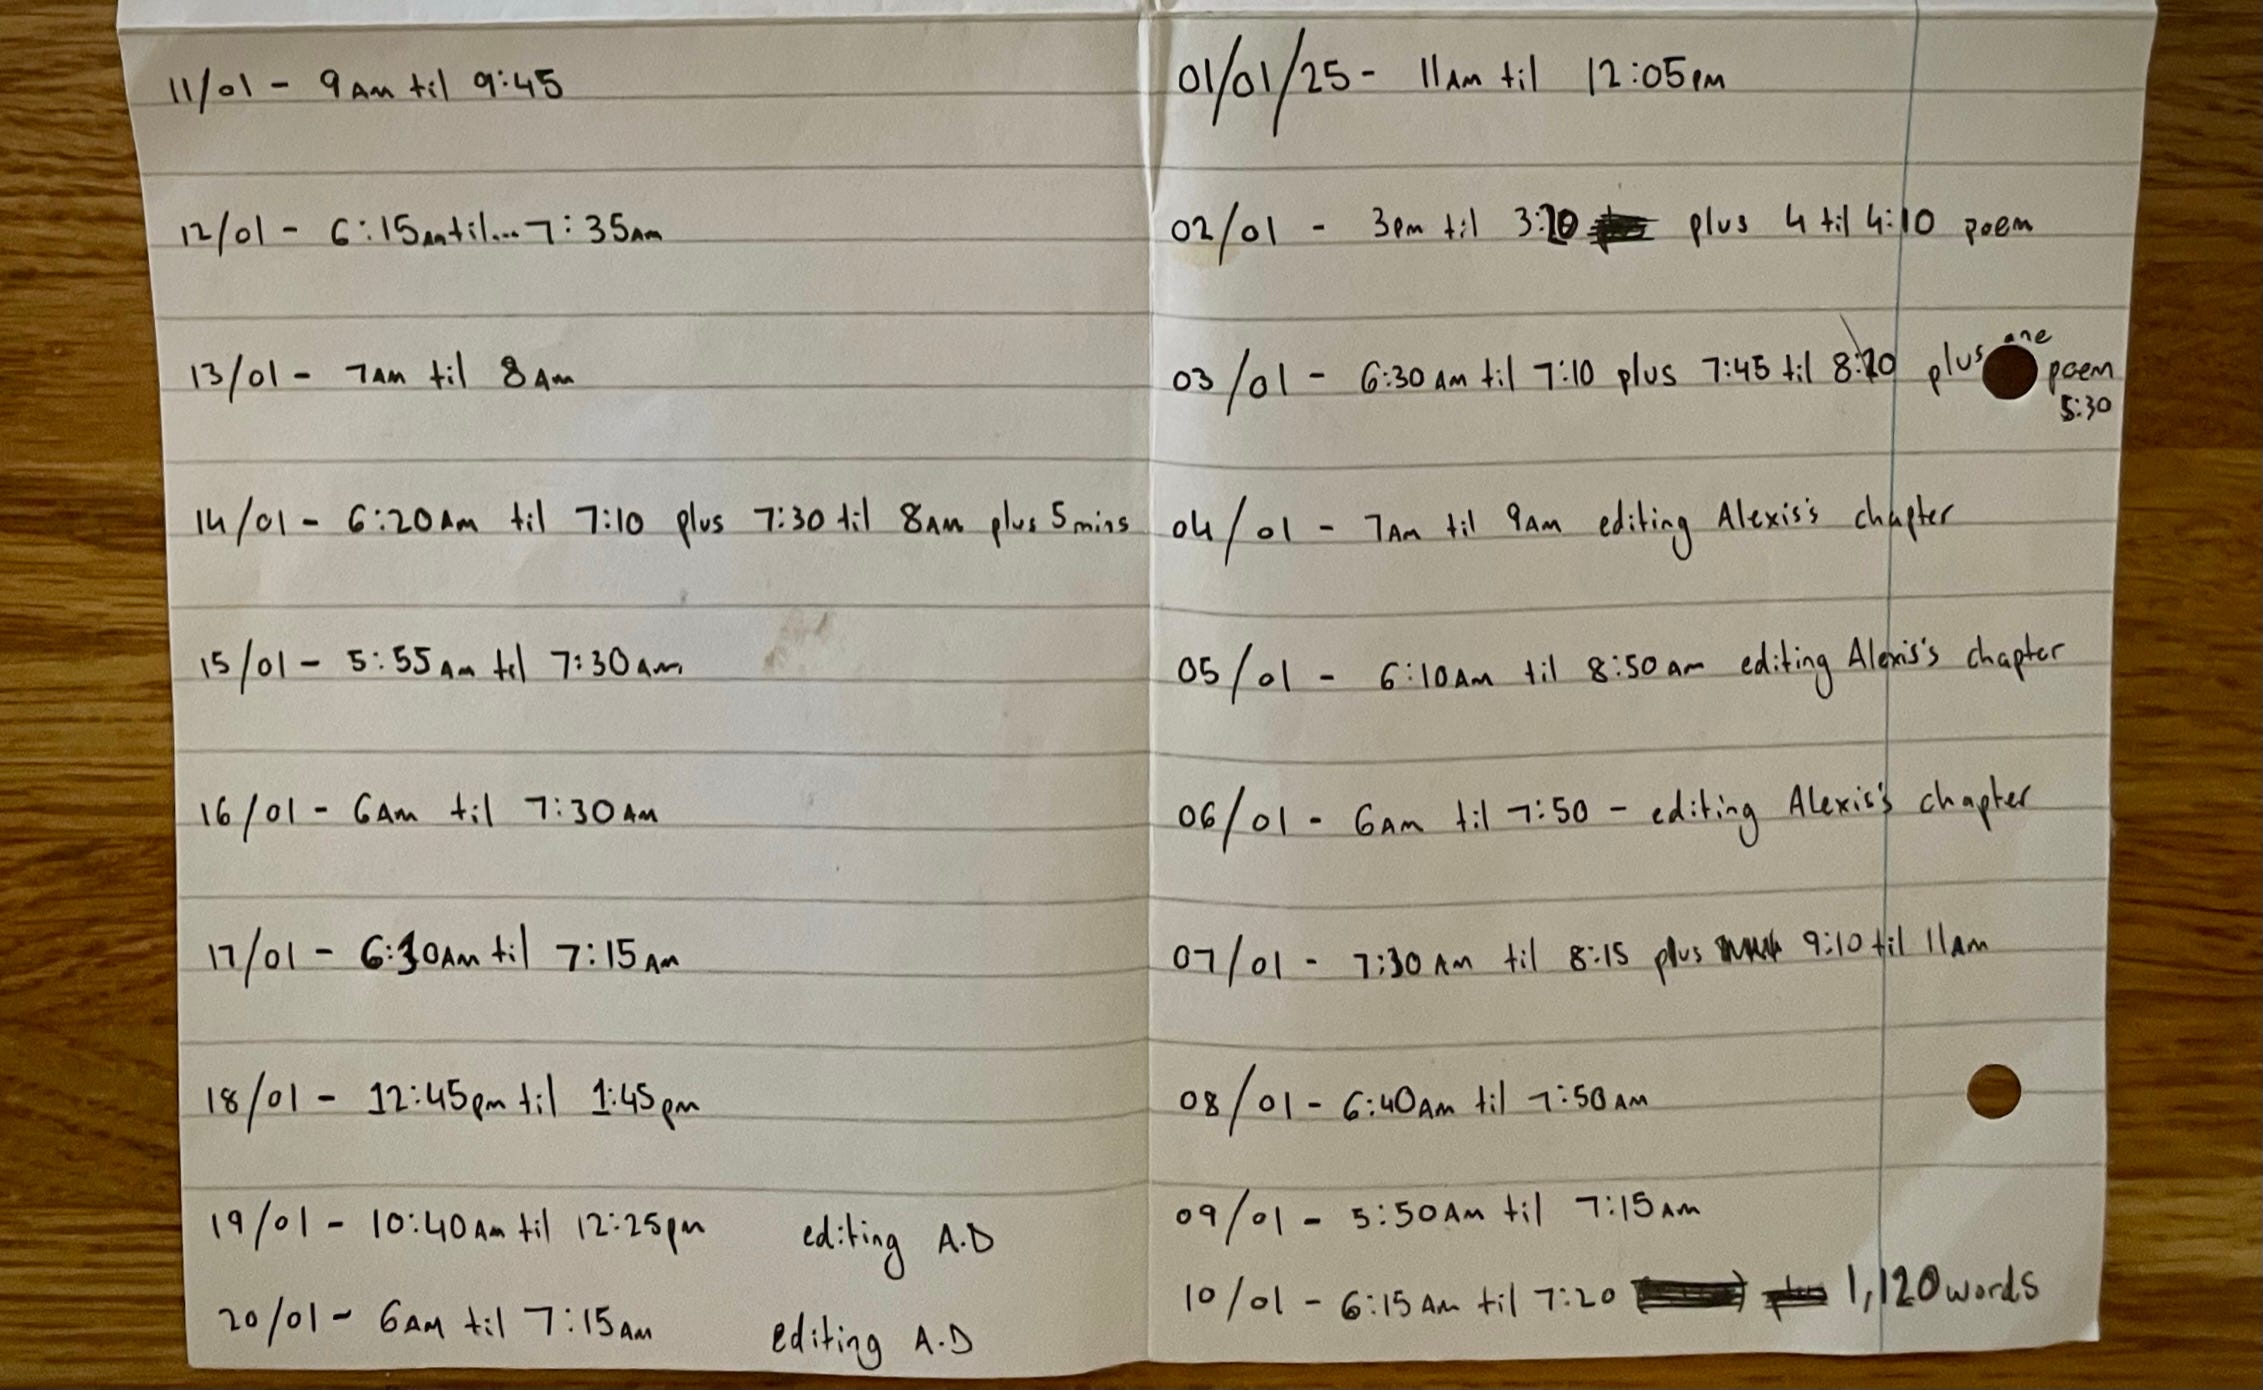 11/01 - 9AM til 9:45
12/01 - 6:15AM til... 7:35AM
13/01 - 7AM til 8AM
14/01 - 6:20AM til 7:10 plus 7:30 til 8AM plus 5 mins
15/01 - 5:55AM til 7:30AM
16/01 - 6AM til 7:30AM
17/01 - 6:30AM til 7:15AM
18/01 - 12:45pm til 1:45pm
19/01 - 10:40AM til 12:25pm editing A.D
20/01 - 6AM til 7:15AM editing A.D
01/01/25 - 11AM til 12:05PM
02/01 - 3pm til 3:20 plus 4 til 4:10 poem
03/01 - 6:30AM til 7:10 plus 7:45 til 8:20 plus one poem 5:30
04/01 - 7AM til 9AM editing Alexis's chapter
05/01 - 6:10AM til 8:50AM editing Alexis's chapter
06/01 - 6AM til 7:50 - editing Alexis's chapter
07/01 - 7:30AM til 8:15 plus 9:10 til 11AM
08/01 - 6:40AM til 7:50AM
09/01 - 5:50AM til 7:15AM
10/01 - 6:15AM til 7:20 1,120 words